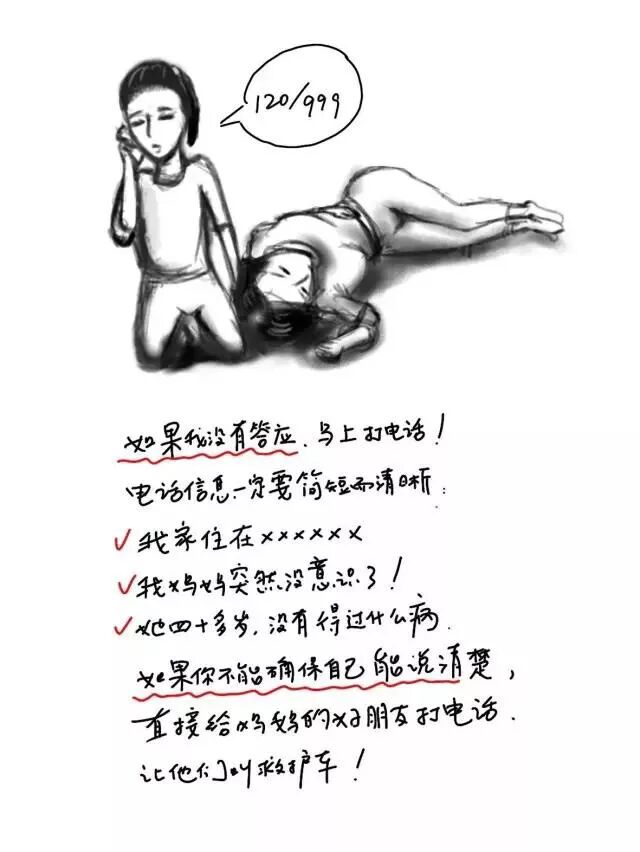 120/999
如果我没有答应、马上打电话！
电话信息一定要简短而清晰：
✓我家住在××××××
✓我妈妈突然没意识了！
✓她四十多岁，没有得过什么病.
如果你不能确保自己能说清楚，
直接给妈妈的好朋友打电话.
让他们叫救护车！